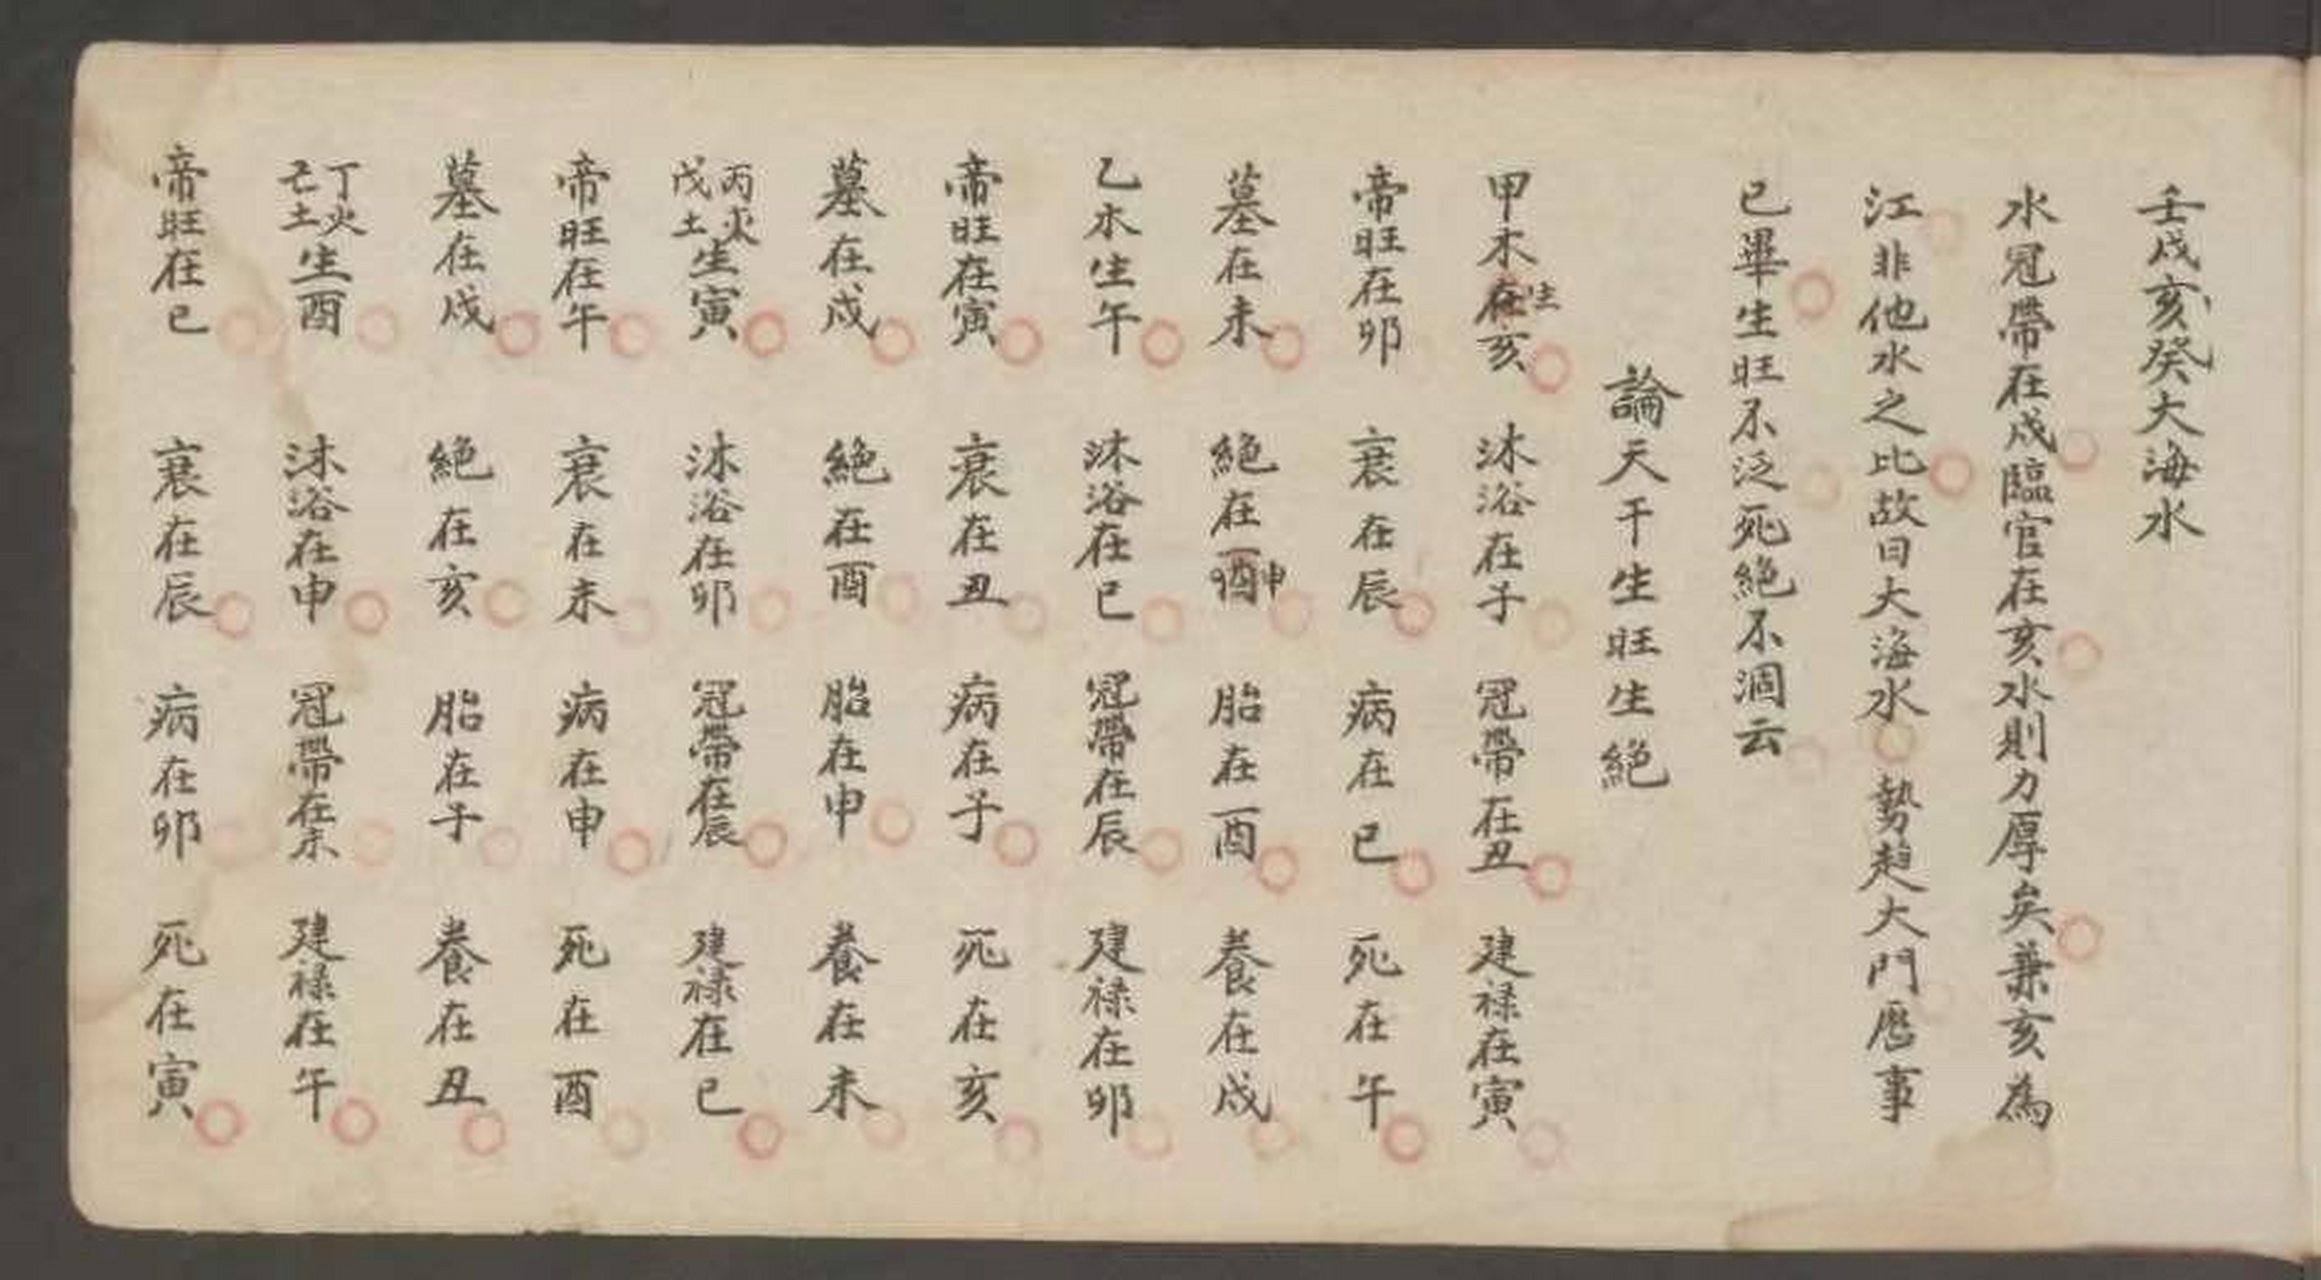 壬戌亥癸大海水
水冠帶在戌臨官在亥水則力厚矣兼亥為
江非他水之比故曰大海水勢趋大門歷事
已畢生旺不泛死絕不涸云
論天干生旺生絕
甲木在生亥 沐浴在子 冠帶在丑 建祿在寅
帝旺在卯 衰在辰 病在巳 死在午
墓在未 絕在酉申 胎在酉 養在戌
乙水生午 沐浴在巳 冠帶在辰 建祿在卯
帝旺在寅 衰在丑 病在子 死在亥
墓在戌 絕在酉 胎在申 養在未
丙火戊土生寅 沐浴在卯 冠帶在辰 建祿在巳
帝旺在午 衰在未 病在申 死在酉
墓在戌 絕在亥 胎在子 養在丑
丁火己土生酉 沐浴在申 冠帶在未 建祿在午
帝旺在巳 衰在辰 病在卯 死在寅